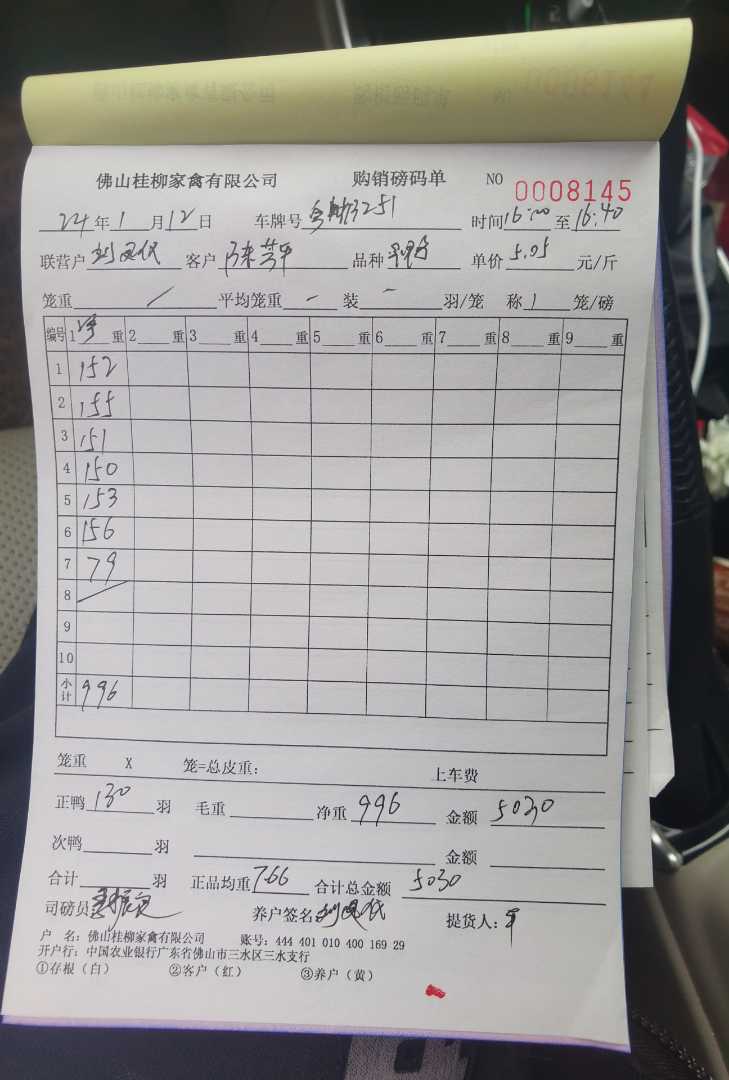 佛山桂柳家禽有限公司 购销磅码单 NO 0008145
24年1月12日 车牌号 3251 时间16:00至16:40
联营户 客户 品种 单价5.05元/斤
笼重 / 平均笼重 - 装 - 羽/笼 称1笼/磅
编号 1净重 2重 3重 4重 5重 6重 7重 8重 9重
1 152
2 155
3 151
4 150
5 153
6 156
7 79
8 /
9
10
小计 996
笼重 X 笼=总皮重: 上车费
正鸭130羽 毛重 净重996 金额5030
次鸭 羽 金额
合计 羽 正品均重7.66 合计总金额5030
司磅员 养户签名 提货人:
户 名: 佛山桂柳家禽有限公司 账号: 444 401 010 400 169 29
开户行: 中国农业银行广东省佛山市三水区三水支行
①存根(白) ②客户(红) ③养户(黄)